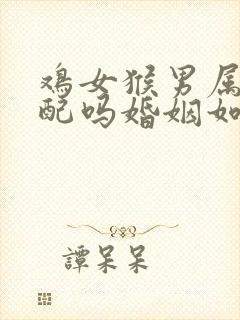 鸡女猴男属
配吗婚姻如
譚呆呆